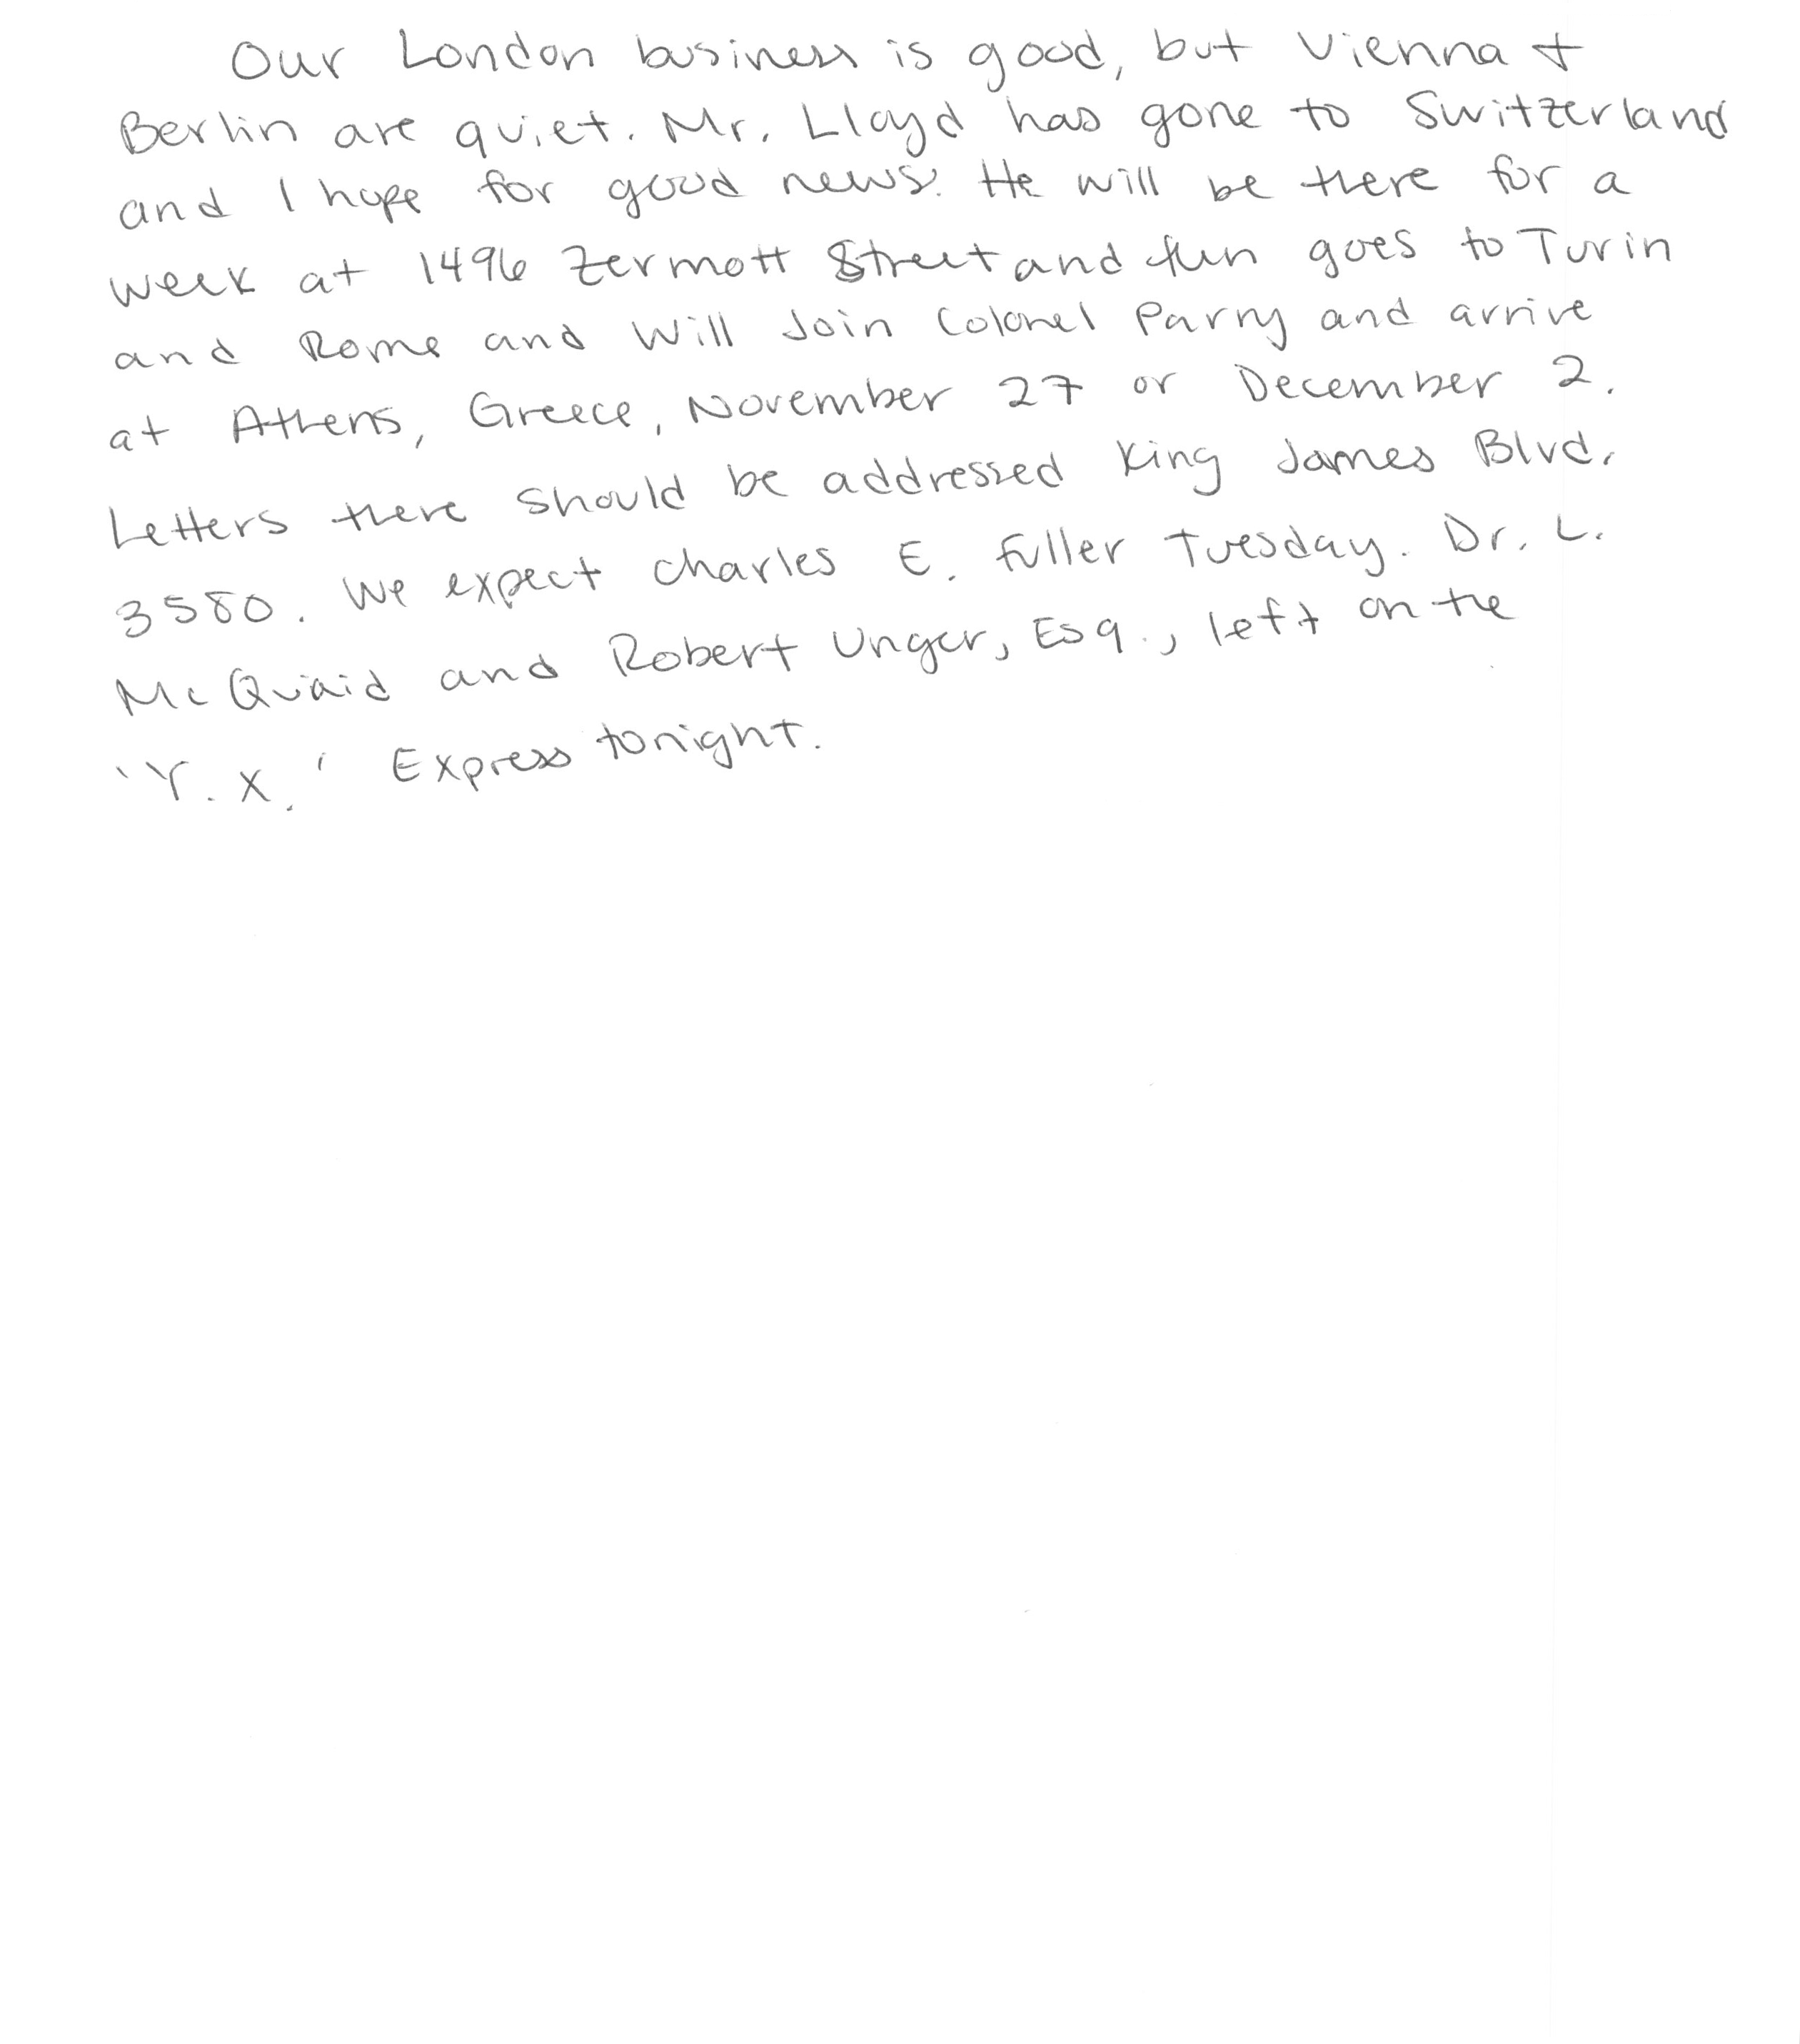 Our London business is good, but Vienna +
Berlin are quiet. Mr. Lloyd has gone to Switzerland
and I hope for good news. He will be there for a
week at 1496 Zermott Street and then goes to Turin
and Rome and will join Colonel Parry and arrive
at Athens, Greece, November 27 or December 2.
Letters there should be addressed King James Blvd.
3580. We expect Charles E. Fuller Tuesday. Dr. L.
McQuaid and Robert Unger, Esq., left on the
'Y. X.' Express tonight.